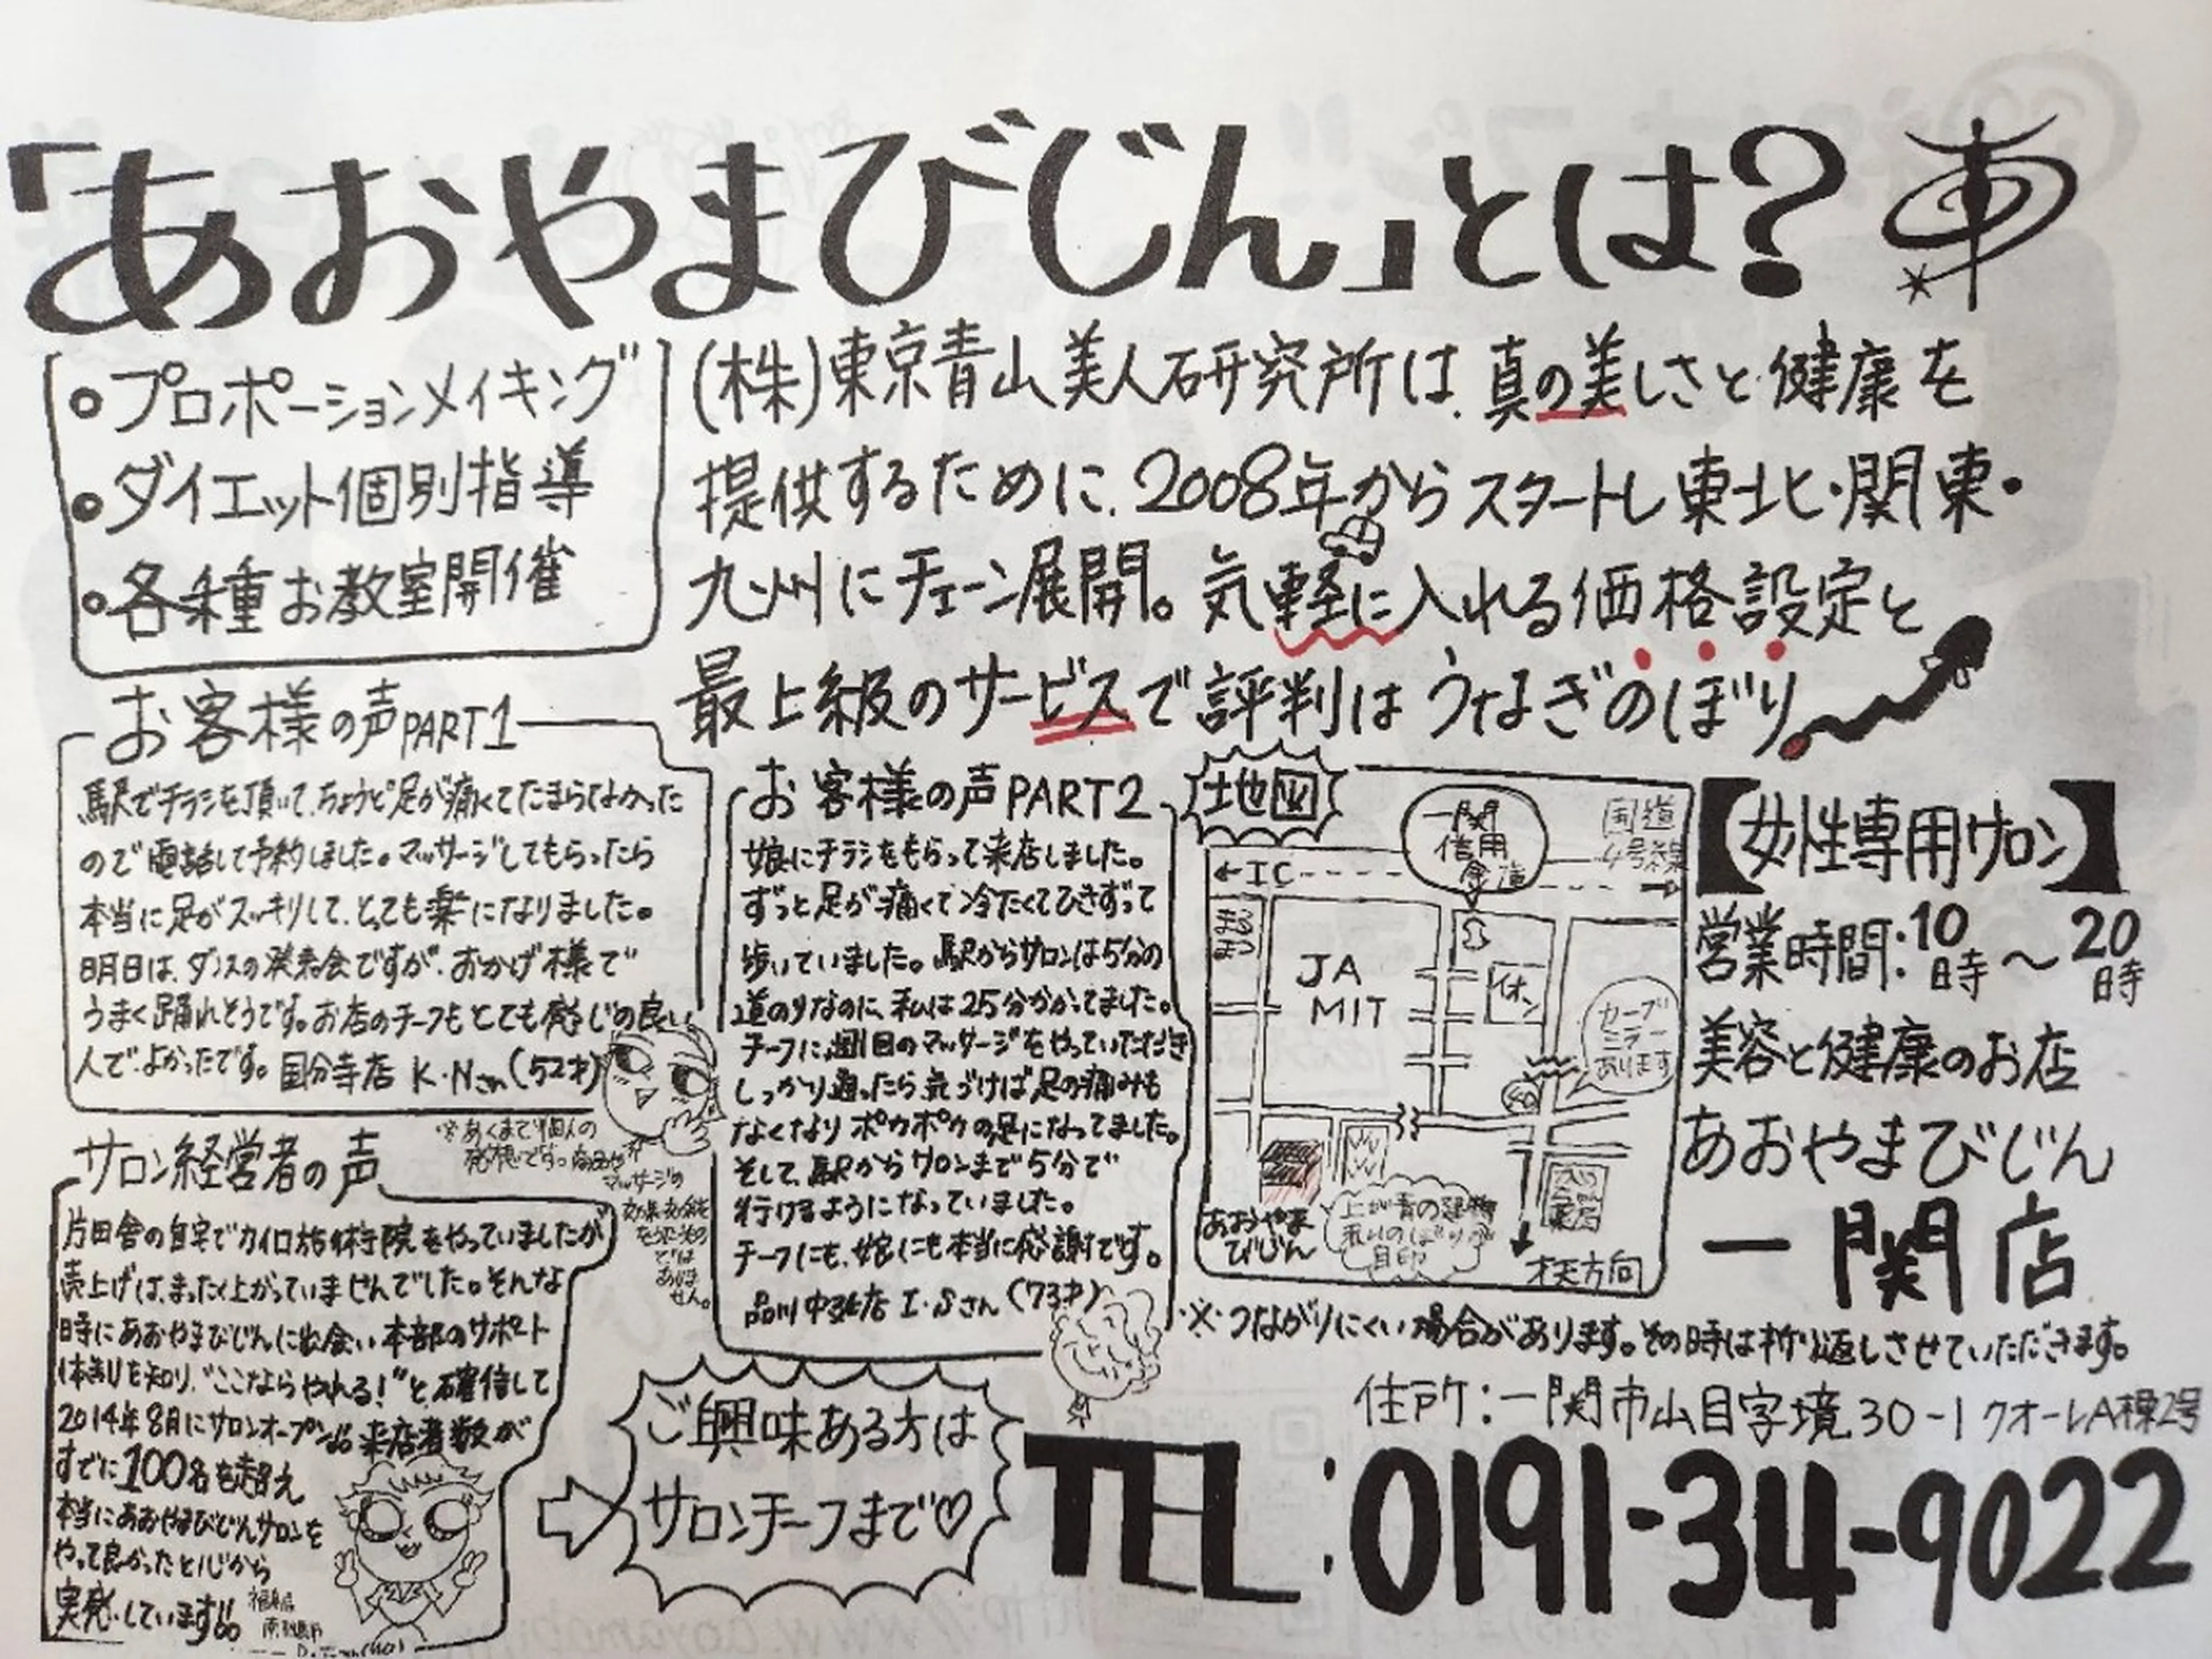 「あおやまびじん」とは?
・プロポーションメイキング
・ダイエット個別指導
・各種お教室開催
(株)東京青山美人研究所は、真の美しさと健康を
提供するために、2008年からスタートし東北・関東・
九州にチェーン展開。気軽に入れる価格設定と
最上級のサービスで評判はうなぎのぼり
お客様の声PART1
駅でチラシを頂いて、ちょうど足が痛くてたまらなかった
ので電話して予約しました。マッサージしてもらったら
本当に足がスッキリして、とっても楽になりました。
明日は、ダンスの発表会ですが、おかげ様で
うまく踊れそうです。お店のチーフもとても感じの良い
人で、よかったです。国分寺店 K・Nさん(52才)
※あくまで個人の
感想です。商品や
マッサージの
効果・効能を
をうたうもの
では
ありま
せん。
サロン経営者の声
片田舎の自宅でカイロ施術院をやっていましたが
売上げは、まったく上がっていませんでした。そんな
時にあおやまびじんに出会い本部のサポート
体制を知り、"ここならやれる!"と、確信して
2014年8月にサロンオープン。来店者数が
すでに100名を超え
本当にあおやまびじんサロンを
やって良かったと心から
実感しています!!
お客様の声PART2
娘にチラシをもらって来店しました。
ずっと足が痛くて冷たくてひきずって
歩いていました。駅からサロンは5分の
道のりなのに、私は25分かかってました。
チーフに、週1回のマッサージをやっていただき
しっかり通ったら気づけば足の痛みも
なくなりポカポカの足になってました。
そして、駅からサロンまで5分で
行けるようになっていました。
チーフにも、娘にも本当に感謝です。
品川中延店 I・Sさん(73才)
ご興味ある方は
サロンチーフまで♡
地図
一関
信用
金庫
国道
4号線
←IC
まるまつ
JA
MIT
イオン
カーブ
ミラー
あります
あおやま
びじん
上が青の建物
赤いのぼりが
目印
薬店
才天方向
【女性専用サロン】
営業時間:10時～20時
美容と健康のお店
あおやまびじん
一関店
※つながりにくい場合があります。その時は折り返しさせていただきます。
住所:一関市山目字境30-1クオーレA棟2号
TEL:0191-34-9022